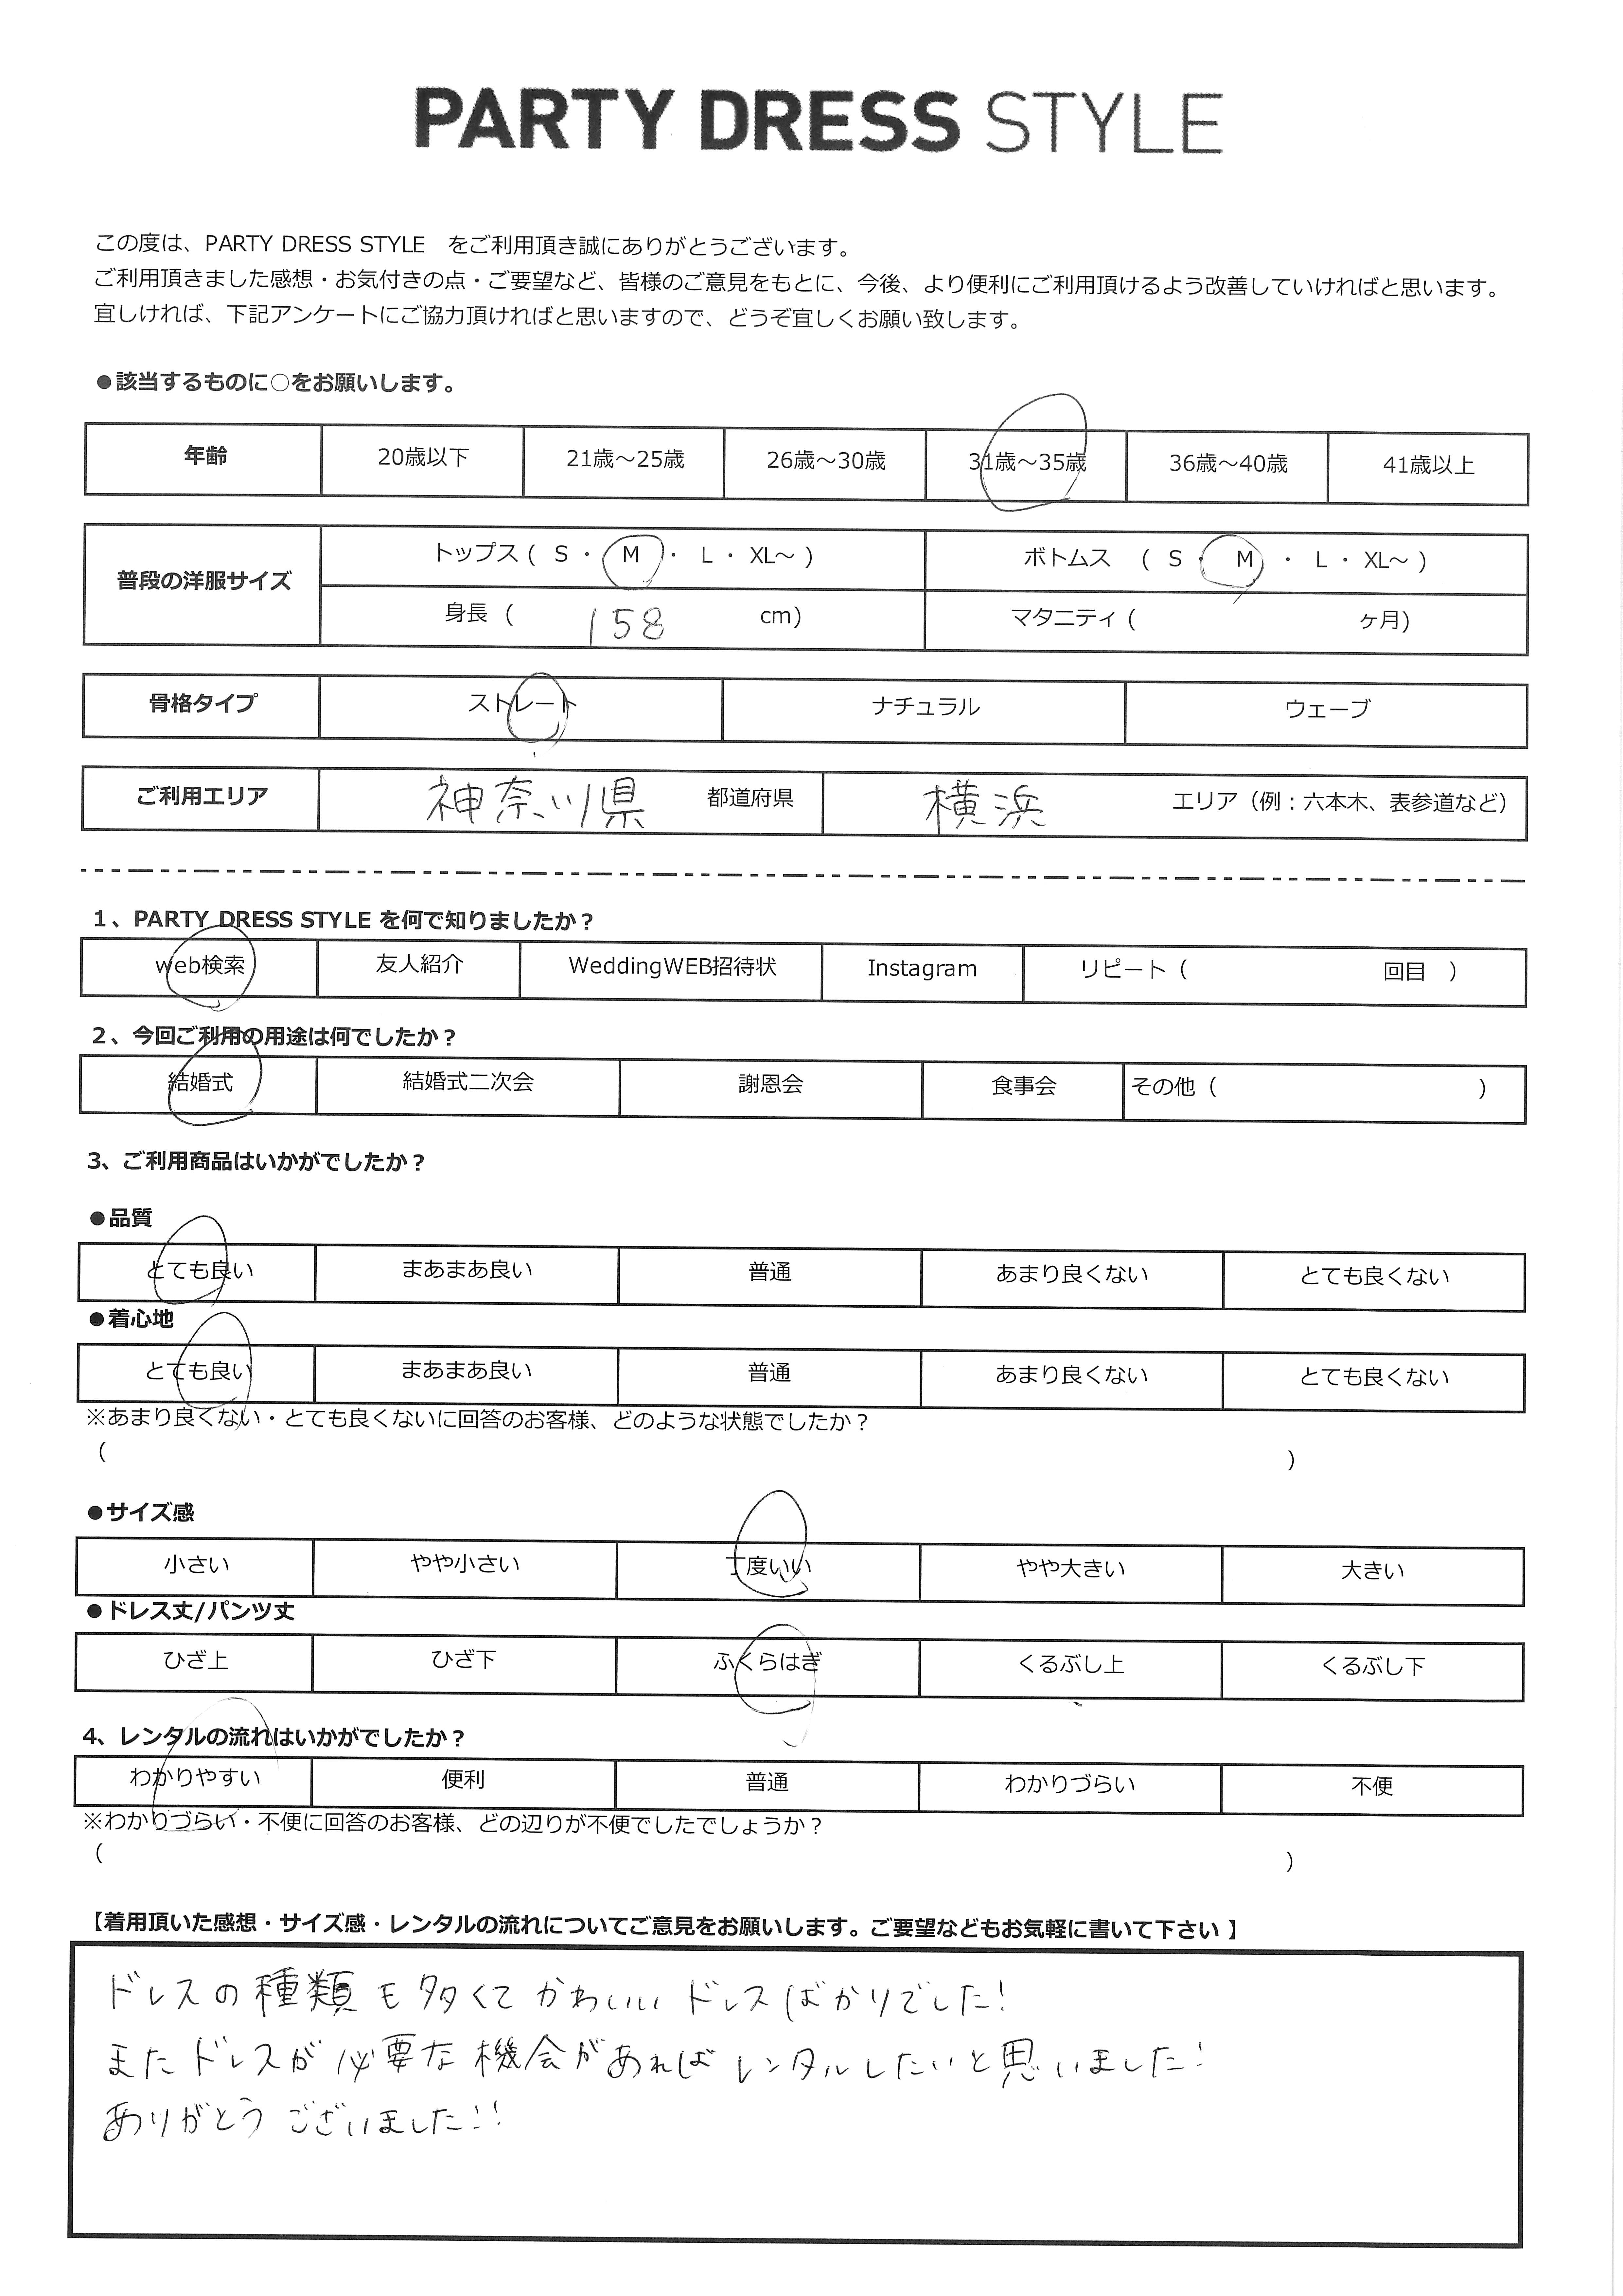 PARTY DRESS STYLE
この度は、PARTY DRESS STYLE　をご利用頂き誠にありがとうございます。
ご利用頂きました感想・お気付きの点・ご要望など、皆様のご意見をもとに、今後、より便利にご利用頂けるよう改善していければと思います。
宜しければ、下記アンケートにご協力頂ければと思いますので、どうぞ宜しくお願い致します。
●該当するものに○をお願いします。
年齢 20歳以下 21歳～25歳 26歳～30歳 31歳～35歳 36歳～40歳 41歳以上
普段の洋服サイズ トップス ( S ・ M ・ L ・ XL～ ) ボトムス ( S ・ M ・ L ・ XL～ )
身長 ( 158 cm) マタニティ ( ヶ月)
骨格タイプ ストレート ナチュラル ウェーブ
ご利用エリア 神奈川県 都道府県 横浜 エリア（例：六本木、表参道など）
1、PARTY DRESS STYLE を何で知りましたか？
web検索 友人紹介 WeddingWEB招待状 Instagram リピート（ 回目 ）
2、今回ご利用の用途は何でしたか？
結婚式 結婚式二次会 謝恩会 食事会 その他（ ）
3、ご利用商品はいかがでしたか？
●品質
とても良い まあまあ良い 普通 あまり良くない とても良くない
●着心地
とても良い まあまあ良い 普通 あまり良くない とても良くない
※あまり良くない・とても良くないに回答のお客様、どのような状態でしたか？
( )
●サイズ感
小さい やや小さい 丁度いい やや大きい 大きい
●ドレス丈/パンツ丈
ひざ上 ひざ下 ふくらはぎ くるぶし上 くるぶし下
4、レンタルの流れはいかがでしたか？
わかりやすい 便利 普通 わかりづらい 不便
※わかりづらい・不便に回答のお客様、どの辺りが不便でしたでしょうか？
( )
【着用頂いた感想・サイズ感・レンタルの流れについてご意見をお願いします。ご要望などもお気軽に書いて下さい 】
ドレスの種類も多くてかわいいドレスばかりでした！
またドレスが必要な機会があればレンタルしたいと思いました！
ありがとうございました！！